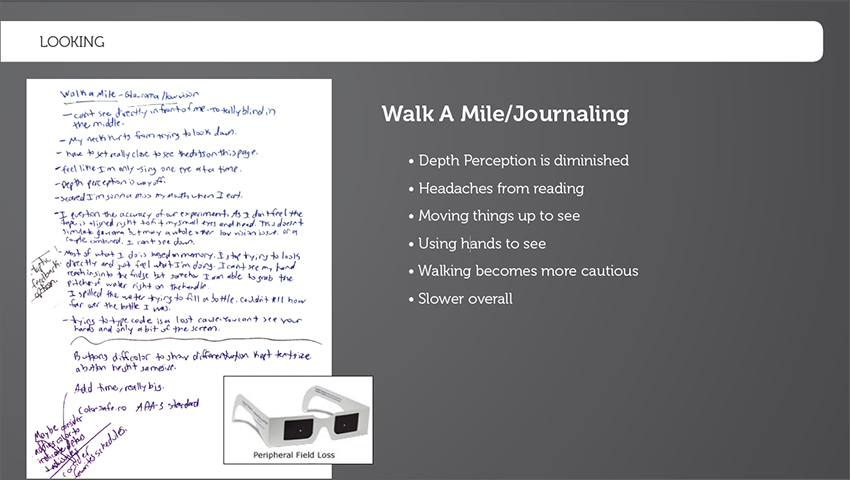 LOOKING
Walk a Mile - Glaucoma/low vision
- can't see directly in front of me. Totally blind in
the middle.
- My neck hurts from trying to look down.
- have to get really close to see the dots on this page.
- feel like I'm only using one eye at a time.
- Depth perception is way off.
- scared I'm gonna miss my mouth when I eat.
- I question the accuracy of our experiment. As I don't feel the
tape is aligned right to fit my small eyes and head. This doesn't
simulate glaucoma but may a whole other low vision issue. or a
couple combined. I can't see down.
- Most of what I do is based on memory. I stop trying to look
directly and just feel what I'm doing. I can't see my hand
reaching into the fridge but somehow I am able to grab the
pitcher of water right on the handle.
I spilled the water trying to fill a bottle. Couldn't tell how
far over the bottle I was.
- trying to type code is a lost cause. You can't see your
hands and only a bit of the screen.
feedback
option
Buttons diff color to show differentiation kept text size
a button height same size.
Add time, really big.
colorsafe.co
standard
Maybe consider
adding color to
indicate
consider
schedules.
Peripheral Field Loss
Walk A Mile/Journaling
• Depth Perception is diminished
• Headaches from reading
• Moving things up to see
• Using hands to see
• Walking becomes more cautious
• Slower overall